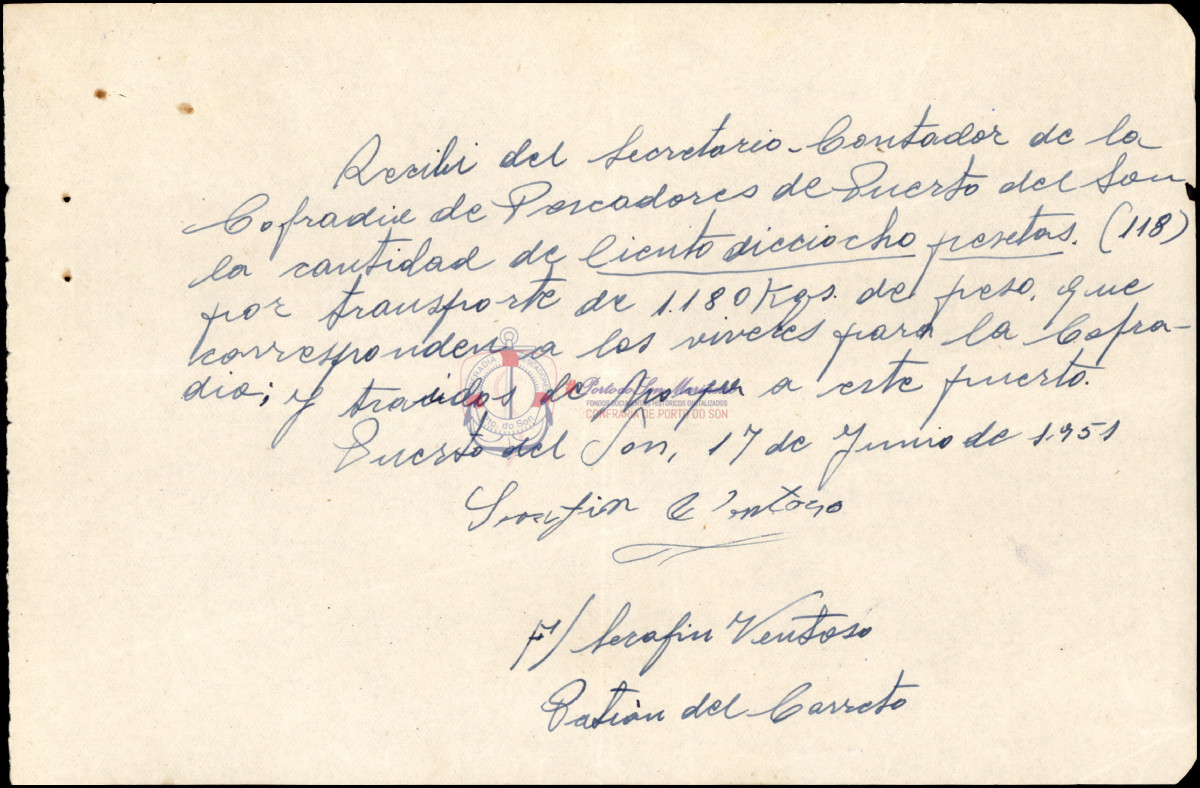 Recibi del Secretario-Contador de la
Cofradia de Pescadores de Puerto del Son,
la cantidad de Ciento dieciocho pesetas. (118)
por transporte de 1.180 Kgs. de peso, que
corresponden a los viveres para la Cofra-
dia; y traidos de a este puerto.
Puerto del Son, 17 de Junio de 1.951
Serafin Ventoso
F/ Serafin Ventoso
Patrón del Carreto
COFRADIA PESCADORES
Pto. do Son
Porto do Son
FONDOS DOCUMENTAIS HISTÓRICOS DIGITALIZADOS
CONFRARÍA DE PORTO DO SON